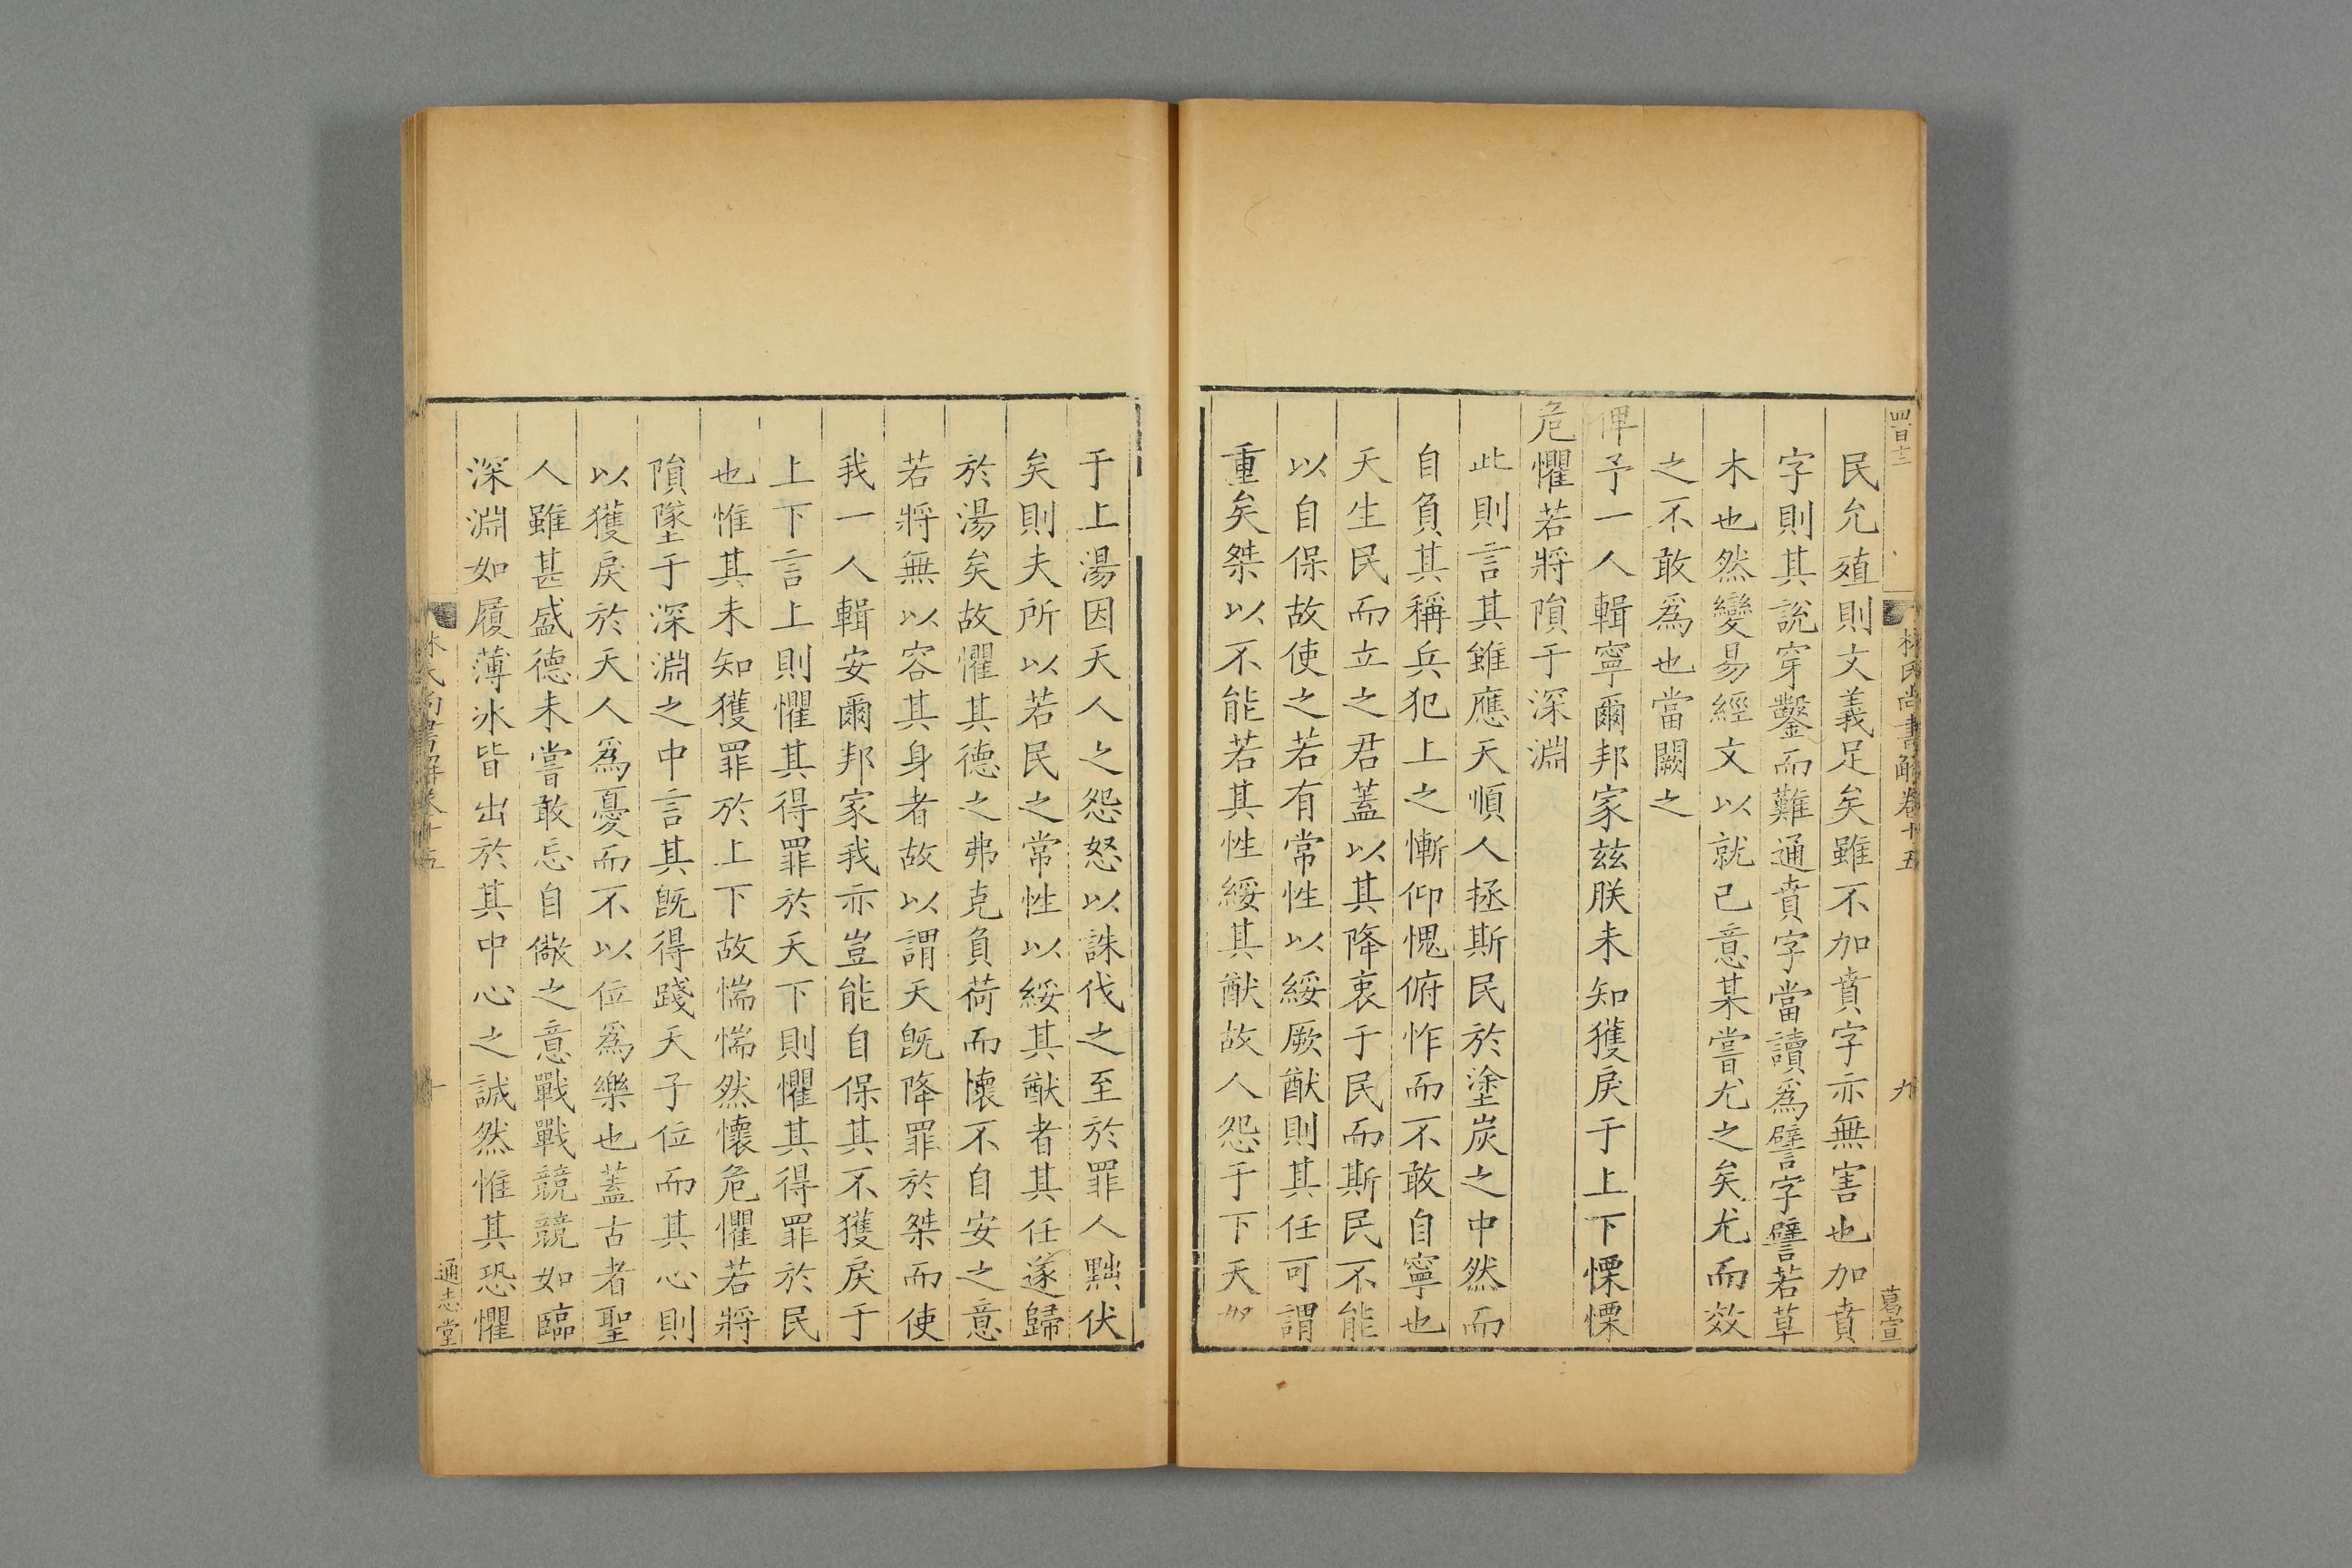 四百十三
林氏尚書解卷十五
九
葛宣
民允殖則文義足矣雖不加賁字亦無害也加賁
字則其說穿鑿而難通賁字當讀爲譬字譬若草
木也然變易經文以就己意某嘗尤之矣尤而效
之不敢爲也當闕之
俾予一人輯寧爾邦家茲朕未知獲戾于上下慄慄
危懼若將隕于深淵
此則言其雖應天順人拯斯民於塗炭之中然而
自負其稱兵犯上之慚仰愧俯怍而不敢自寧也
天生民而立之君蓋以其降衷于民而斯民不能
以自保故使之若有常性以綏厥猷則其任可謂
重矣桀以不能若其性綏其猷故人怨于下天
于上湯因天人之怨怒以誅伐之至於罪人黜伏
矣則夫所以若民之常性以綏其猷者其任遂歸
於湯矣故懼其德之弗克負荷而懷不自安之意
若將無以容其身者故以謂天旣降罪於桀而使
我一人輯安爾邦家我亦豈能自保其不獲戾于
上下言上則懼其得罪於天下則懼其得罪於民
也惟其未知獲罪於上下故惴惴然懷危懼若將
隕墜于深淵之中言其旣得踐天子位而其心則
以獲戾於天人爲憂而不以位爲樂也蓋古者聖
人雖甚盛德未嘗敢忘自儆之意戰戰競競如臨
深淵如履薄冰皆出於其中心之誠然惟其恐懼
林氏尚書解卷十五
十
通志堂